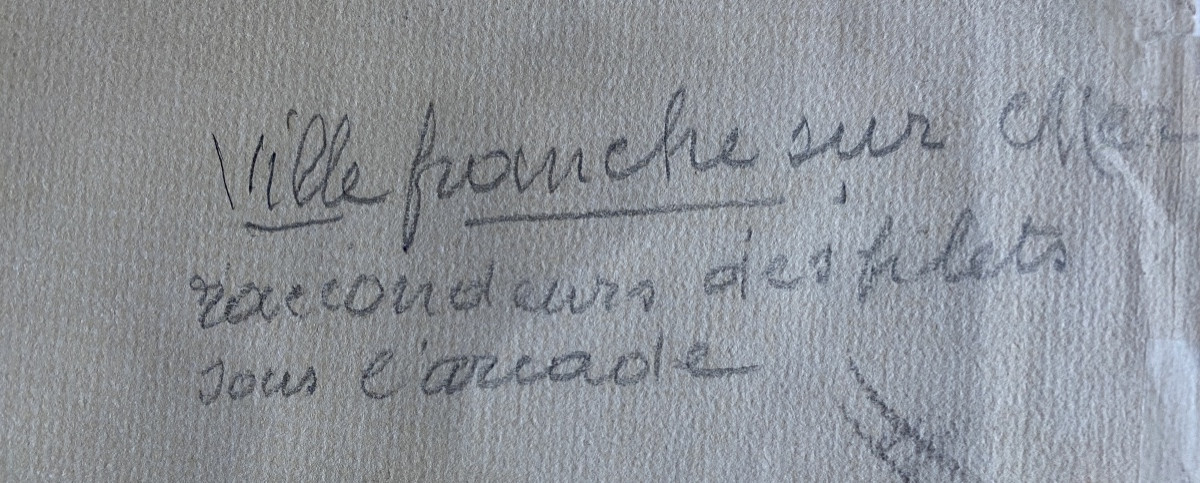 Ville franche sur Mer
raccondeurs des filets
sous l'arcade